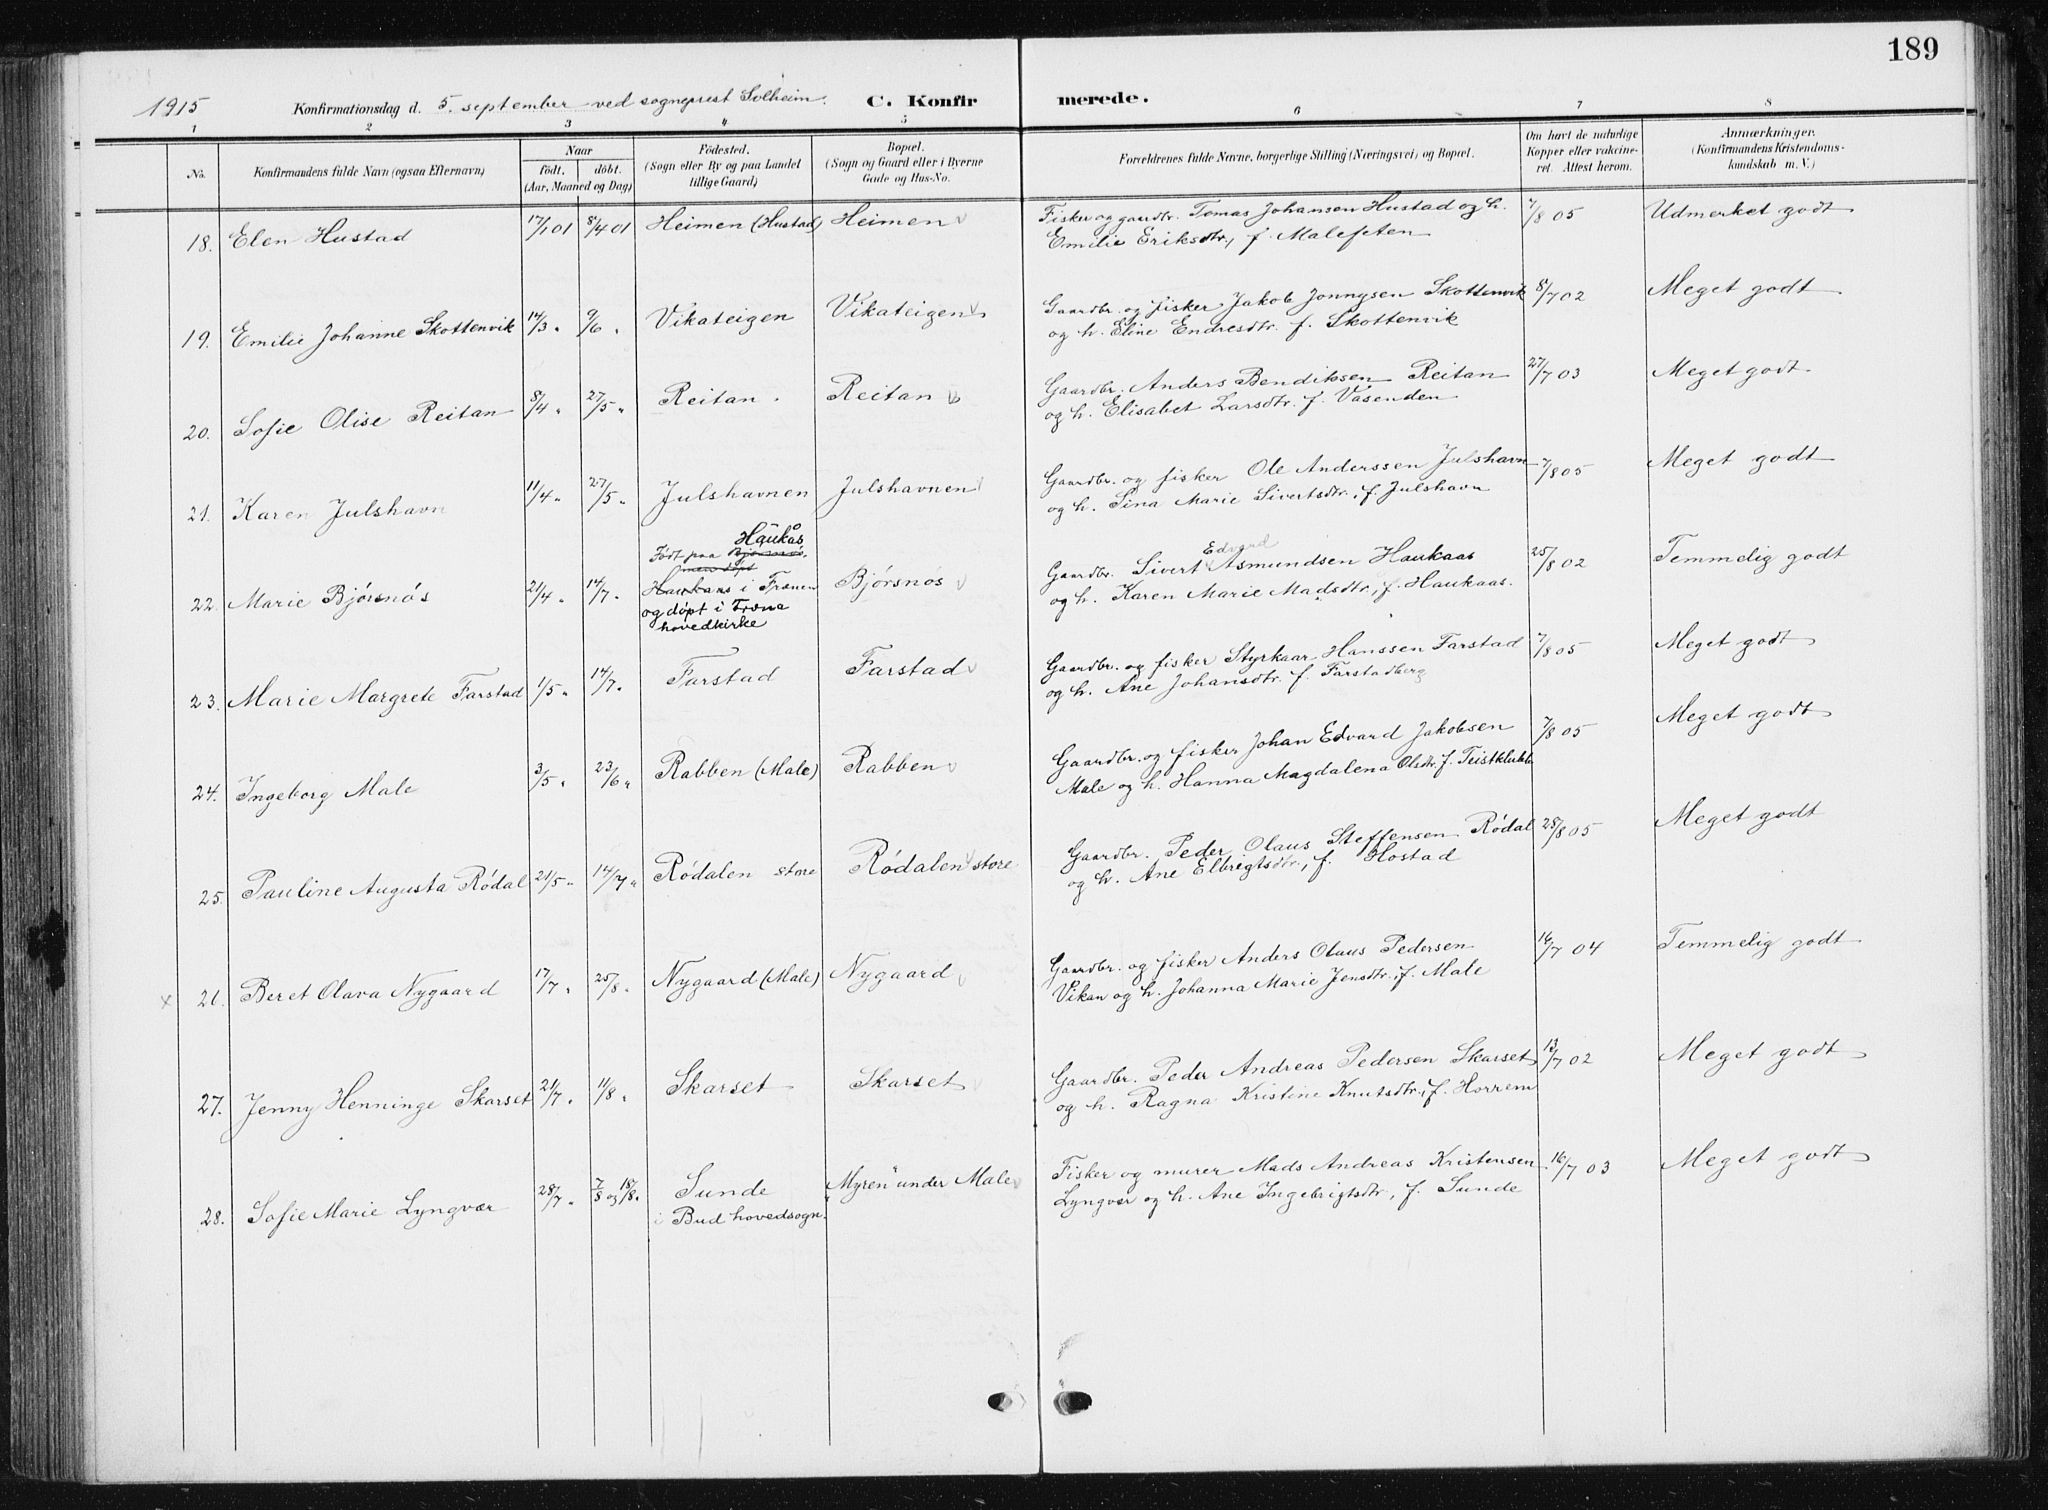 189
1915 Konfirmationsdag d. 5. september ved sogneprest Solheim. C. Konfirmerede.
1 2 3 4 5 6 7 8
No. Konfirmandens fulde Navn (ogsaa Efternavn) Naar født. døbt. (Aar, Maaned og Dag) Fødested. (Sogn eller By og paa Landet tillige Gaard) Bopæl. (Sogn og Gaard eller i Byerne Gade og Hus-No. Forældrenes fulde Navne, borgerlige Stilling (Næringsvei) og Bopæl. Om havt de naturlige Kopper eller vakcineret. Attest herom. Anmærkninger. (Konfirmandens Kristendomskundskab m. V.)
18. Elen Hustad 17/1 01 8/4 01 Heimen (Hustad) Heimen Fisker og gaardbr. Tomas Johansen Hustad og h. 7/8 05 Udmerket godt
Emilie Eriksdtr, f. Malefeten
19. Emilie Johanne Skottenvik 14/3 " 9/6 " Vikateigen Vikateigen Gaardbr. og fisker Jakob Jonnysen Skottenvik 8/7 02 Meget godt
og h. Eline Endresdtr. f. Skottenvik
20. Sofie Olise Reitan 8/4 " 27/5 " Reitan Reitan Gaardbr. Anders Bendiksen Reitan 27/7 03 Meget godt
og h. Elisabet Larsdtr. f. Vasenden
21. Karen Julshavn 11/4 " 27/5 " Julshavnen Julshavnen Gaardbr. og fisker Ole Anderssen Julshavn 7/8 05 Meget godt
og h. Sina Marie Sivertsdtr, f. Julshavn
Haukås
Født paa Bjørsnøs,
men døpt
22. Marie Bjørsnøs 21/4 " 14/7 " Haukaas i Frænen Bjørsnøs Gaardbr. Sivert Edvard Asmundsen Haukaas 25/8 02 Temmelig godt
og døpt i Fræna
hovedkirke
og h. Karen Marie Madsdtr, f. Haukaas.
23. Marie Margrete Farstad 1/5 " 14/7 " Farstad Farstad Gaardbr. og fisker Styrkaar Hanssen Farstad 7/8 05 Meget godt
og h. Ane Johansdtr. f. Farstadberg
24. Ingeborg Male 3/5 " 23/6 " Rabben (Male) Rabben Gaardbr. og fisker Johan Edvard Jakobsen 7/8 05 Meget godt
Male og h. Hanna Magdalena Olsdtr. f. Teistklubb
25. Pauline Augusta Rødal 21/5 " 14/7 " Rødalen store Rødalen store Gaardbr. Peder Olaus Steffensen Rødal 28/8 05 Meget godt
og h. Ane Elbrigtsdtr., f. Hostad
x 26. Beret Olava Nygaard 17/7 " 25/8 " Nygaard (Male) Nygaard Gaardbr. og fisker Anders Olaus Pedersen 16/7 04 Temmelig godt
Vikan og h. Johanna Marie Jensdtr, f. Male
27. Jenny Henninge Skarset 21/7 " 11/8 " Skarset Skarset Gaardbr. Peder Andreas Pedersen Skarset 13/7 02 Meget godt
og h. Ragna Kristine Knutsdtr, f. Horrem
28. Sofie Marie Lyngvær 28/7 " 7/8 og 18/8 " Sunde "Myren" under Male Fisker og murer Mads Andreas Kristensen 16/7 03 Meget godt
i Bud hovedsogn. Lyngvær og h. Ane Ingebrigtsdtr, f. Sunde